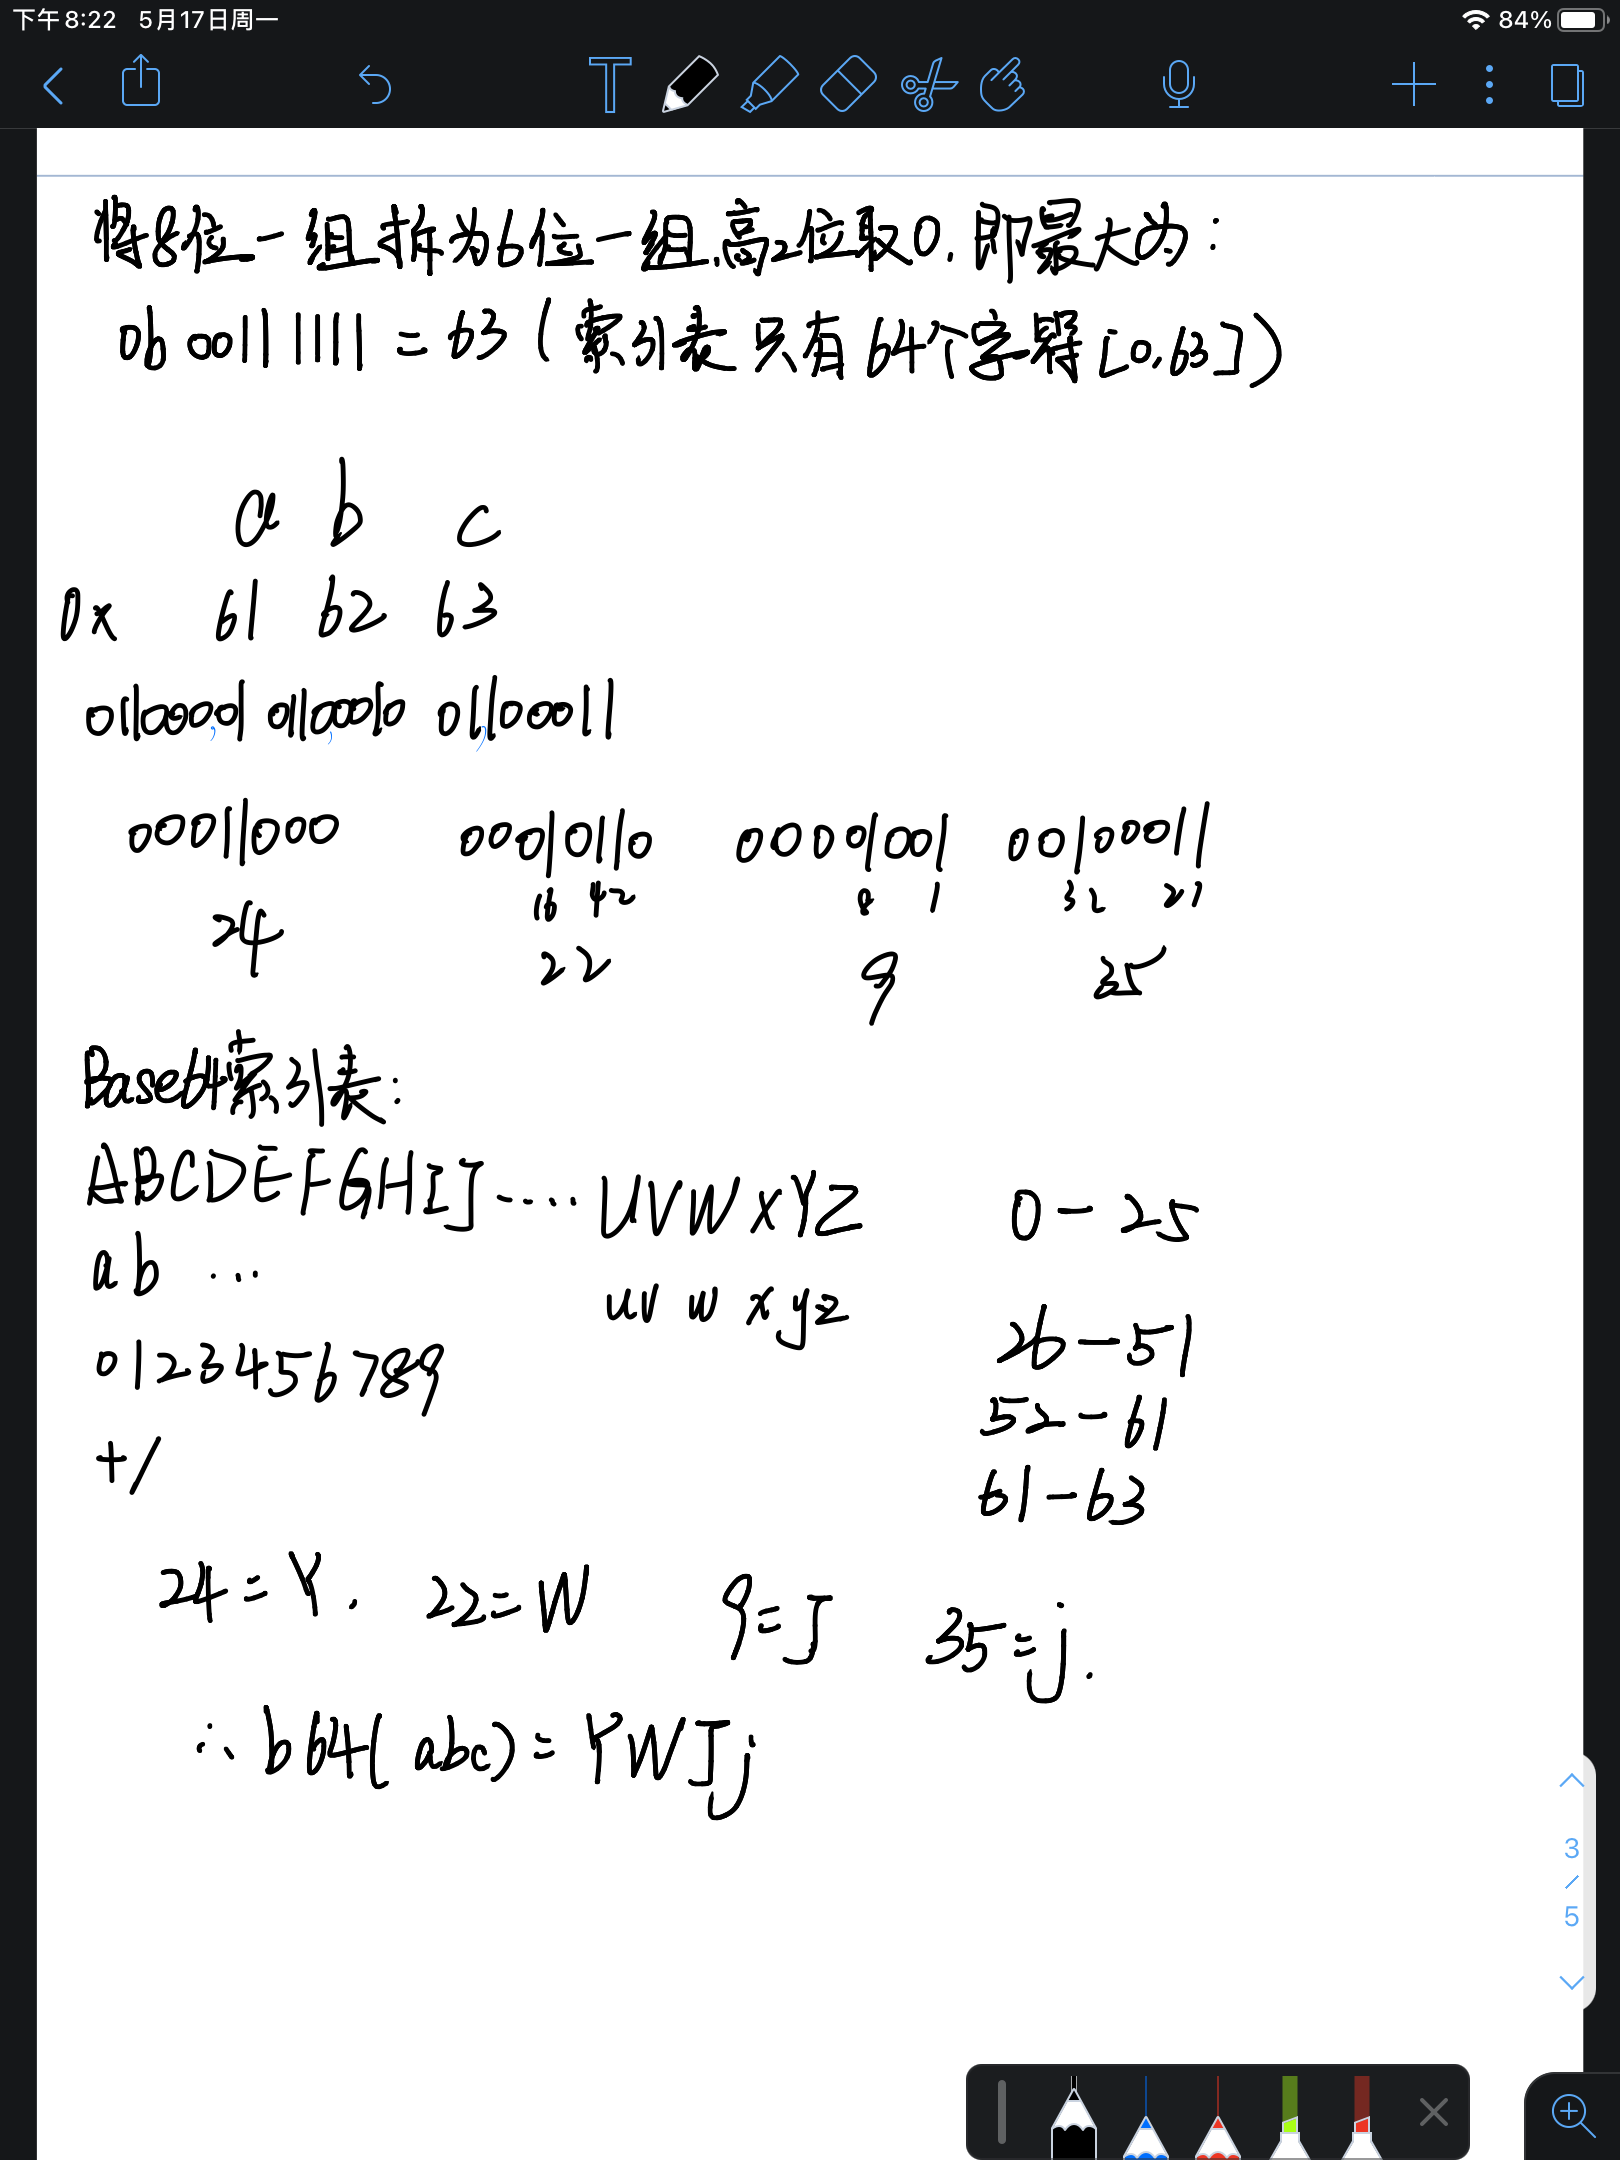 下午8:22 5月17日周一 84%
将8位一组拆为6位一组,高2位取0,即最大为:
0b 00111111 = 63 (索引表只有64个字符[0,63])
a b c
0x 61 62 63
01100001 01100010 01100011
00011000 00010110 00001001 00100011
16 42 8 1 32 21
24 22 9 35
Base64索引表:
ABCDEFGHIJ····· UVWXYZ 0-25
ab ... uvwxyz 26-51
0123456789 52-61
+/ 61-63
24=Y. 22=W 9=J 35=j.
∴ b64(abc)= YWJj
3
/
5